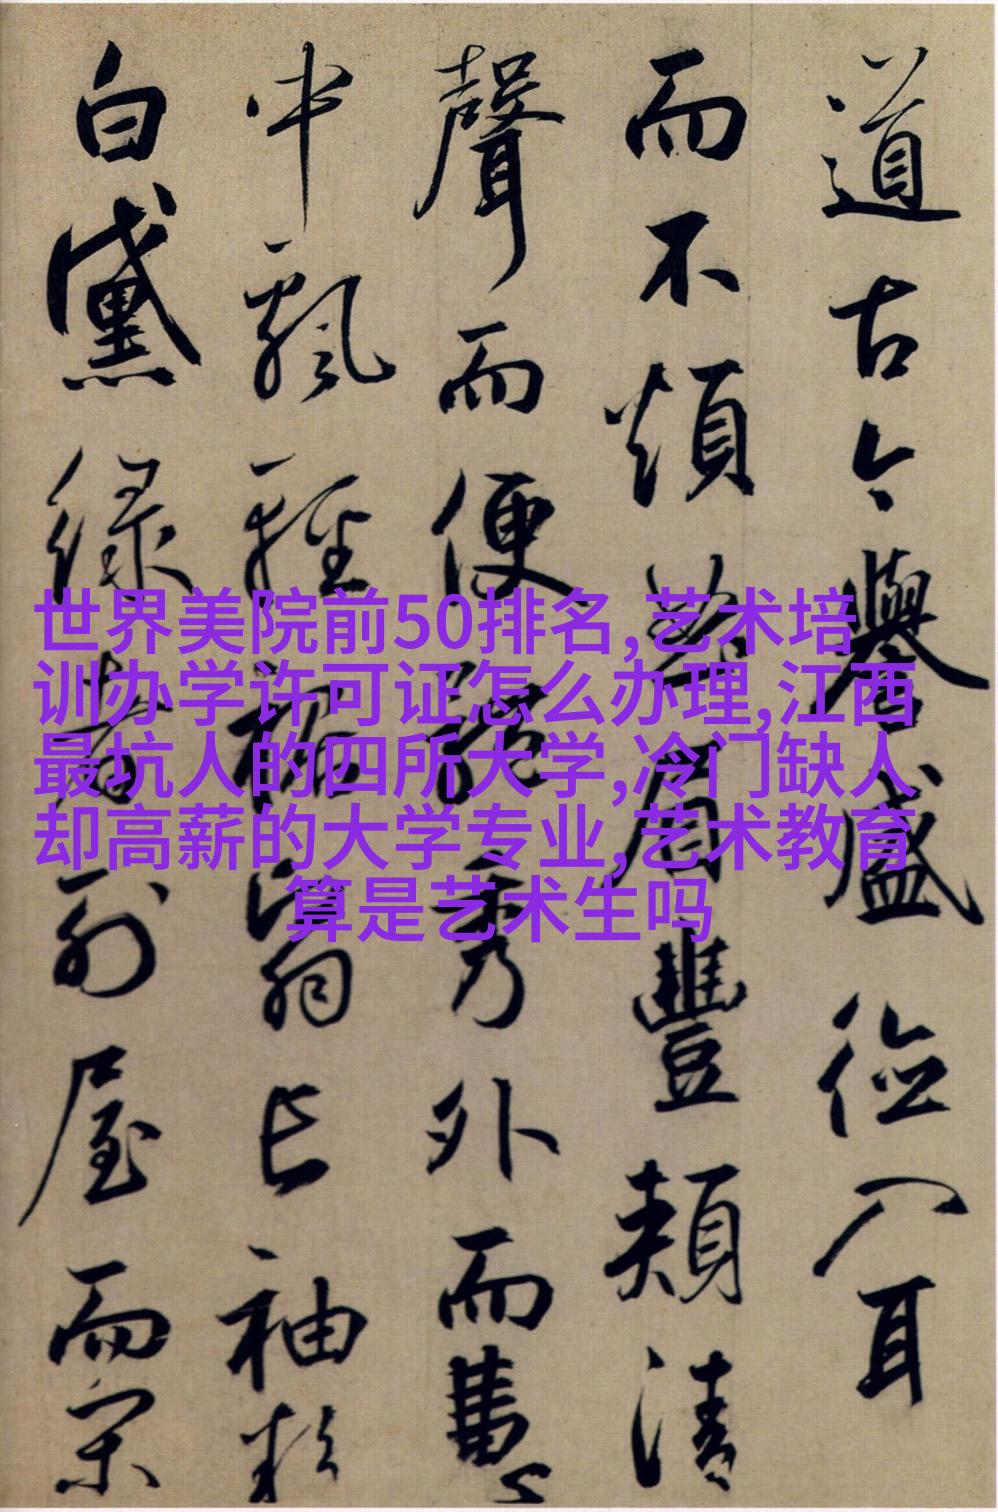 道古今譽盛德入耳
而不煩曲眉豐頰清
聲而便體秀外而惠
中飄輕裾翳長袖粉
白黛綠者列屋而閑
世界美院前50排名,艺术培
训办学许可证怎么办理,江西
最坑人的四所大学,冷门缺人
却高薪的大学专业,艺术教育
算是艺术生吗